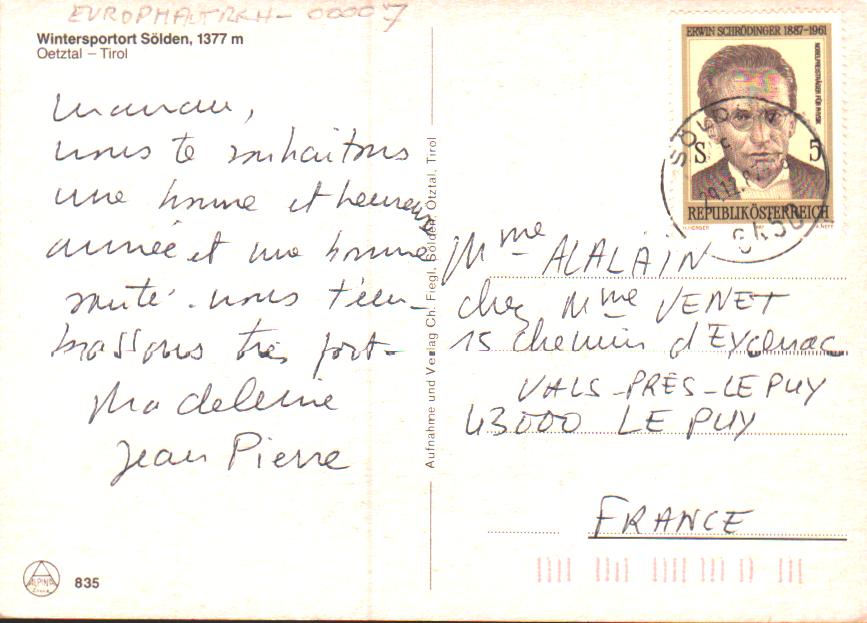 EUROPHAUTRKH - 00007
Wintersportort Sölden, 1377 m
Oetztal – Tirol
maman,
nous te souhaitons
une bonne et heureuse
année et une bonne
santé. nous t'em-
brassons très fort.
Madeleine
Jean Pierre
ALPINA
835
Aufnahme und Verlag Ch. Fiegl, Sölden, Ötztal, Tirol
ERWIN SCHRÖDINGER 1887-1961
NOBELPREISTRÄGER FÜR PHYSIK
S 5
REPUBLIK ÖSTERREICH
SÖLDEN
29.12.87
6450
Mme ALALAIN
chez Mme VENET
15 chemin d'Eycenac
VALS-PRÈS-LE PUY
43000 LE PUY
FRANCE